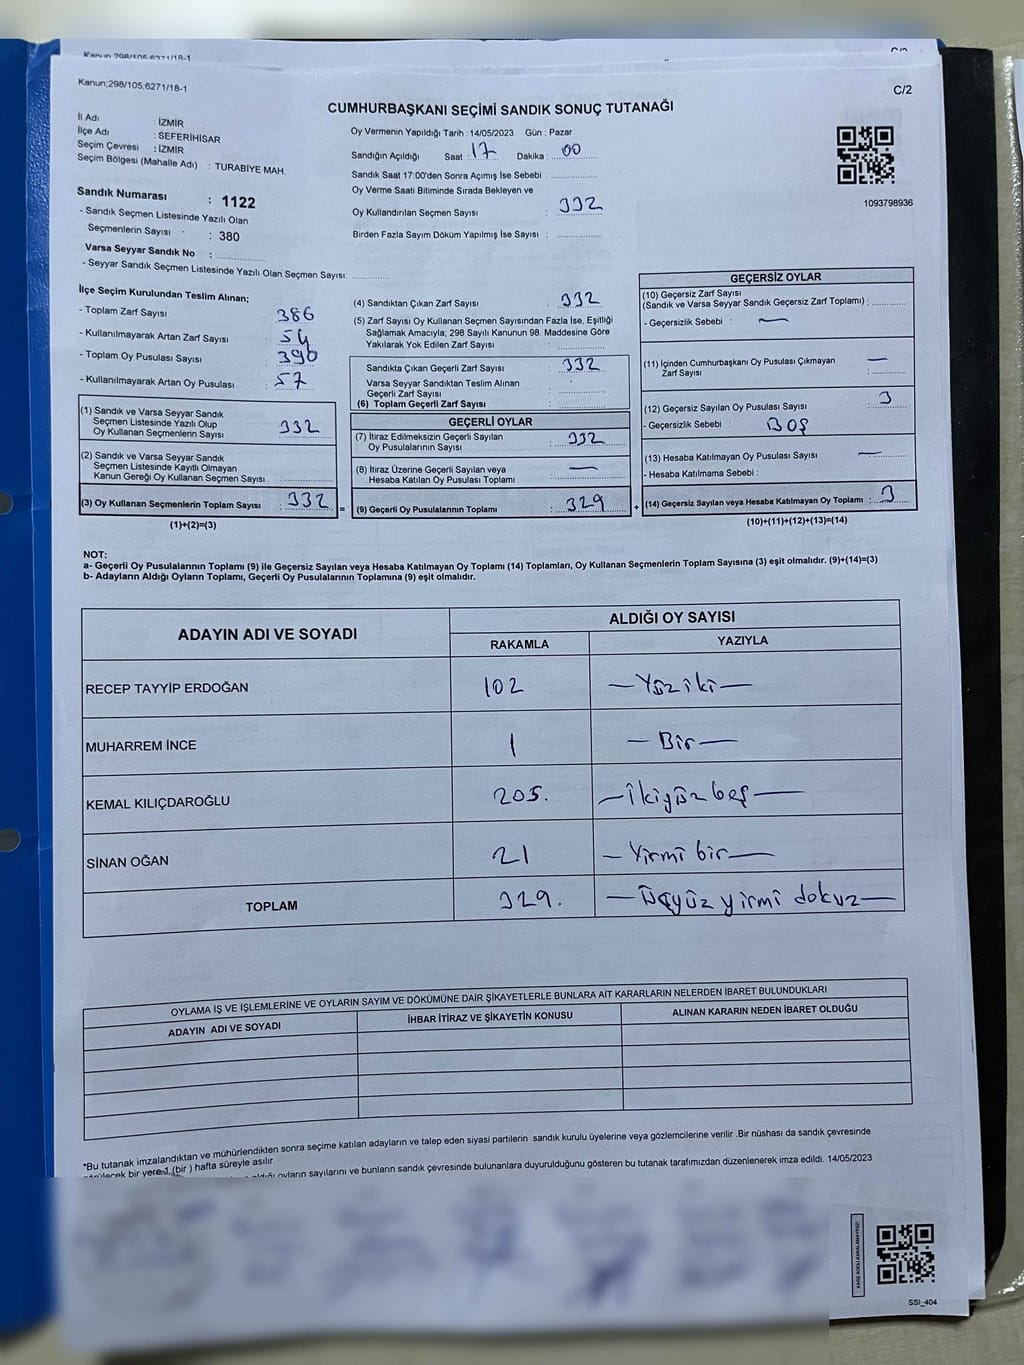 Kanun;298/105;6271/18-1
C/2
CUMHURBAŞKANI SEÇİMİ SANDIK SONUÇ TUTANAĞI
İl Adı : İZMİR
İlçe Adı : SEFERİHİSAR
Seçim Çevresi : İZMİR
Seçim Bölgesi (Mahalle Adı) : TURABİYE MAH.
Sandık Numarası : 1122
- Sandık Seçmen Listesinde Yazılı Olan
Seçmenlerin Sayısı : 380
Varsa Seyyar Sandık No :
- Seyyar Sandık Seçmen Listesinde Yazılı Olan Seçmen Sayısı:
Oy Vermenin Yapıldığı Tarih : 14/05/2023 Gün : Pazar
Sandığın Açıldığı Saat : 17 Dakika : 00
Sandık Saat 17:00'den Sonra Açımış İse Sebebi :
Oy Verme Saati Bitiminde Sırada Bekleyen ve
Oy Kullandırılan Seçmen Sayısı : 332
Birden Fazla Sayım Döküm Yapılmış İse Sayısı :
1093798936
İlçe Seçim Kurulundan Teslim Alınan;
- Toplam Zarf Sayısı : 386
- Kullanılmayarak Artan Zarf Sayısı : 54
- Toplam Oy Pusulası Sayısı : 390
- Kullanılmayarak Artan Oy Pusulası : 57
(1) Sandık ve Varsa Seyyar Sandık
Seçmen Listesinde Yazılı Olup
Oy Kullanan Seçmenlerin Sayısı : 332
(2) Sandık ve Varsa Seyyar Sandık
Seçmen Listesinde Kayıtlı Olmayan
Kanun Gereği Oy Kullanan Seçmen Sayısı :
(3) Oy Kullanan Seçmenlerin Toplam Sayısı : 332 =
(1)+(2)=(3)
(4) Sandıktan Çıkan Zarf Sayısı : 332
(5) Zarf Sayısı Oy Kullanan Seçmen Sayısından Fazla İse, Eşitliği
Sağlamak Amacıyla; 298 Sayılı Kanunun 98. Maddesine Göre
Yakılarak Yok Edilen Zarf Sayısı :
Sandıkta Çıkan Geçerli Zarf Sayısı : 332
Varsa Seyyar Sandıktan Teslim Alınan
Geçerli Zarf Sayısı :
(6) Toplam Geçerli Zarf Sayısı :
GEÇERLİ OYLAR
(7) İtiraz Edilmeksizin Geçerli Sayılan
Oy Pusulalarının Sayısı : 332
(8) İtiraz Üzerine Geçerli Sayılan veya
Hesaba Katılan Oy Pusulası Toplamı : —
(9) Geçerli Oy Pusulalarının Toplamı : 329 +
GEÇERSİZ OYLAR
(10) Geçersiz Zarf Sayısı
(Sandık ve Varsa Seyyar Sandık Geçersiz Zarf Toplamı) :
- Geçersizlik Sebebi : —
(11) İçinden Cumhurbaşkanı Oy Pusulası Çıkmayan
Zarf Sayısı : —
(12) Geçersiz Sayılan Oy Pusulası Sayısı : 3
- Geçersizlik Sebebi : BOŞ
(13) Hesaba Katılmayan Oy Pusulası Sayısı : —
- Hesaba Katılmama Sebebi :
(14) Geçersiz Sayılan veya Hesaba Katılmayan Oy Toplamı : 3
(10)+(11)+(12)+(13)=(14)
NOT:
a- Geçerli Oy Pusulalarının Toplamı (9) ile Geçersiz Sayılan veya Hesaba Katılmayan Oy Toplamı (14) Toplamları, Oy Kullanan Seçmenlerin Toplam Sayısına (3) eşit olmalıdır. (9)+(14)=(3)
b- Adayların Aldığı Oyların Toplamı, Geçerli Oy Pusulalarının Toplamına (9) eşit olmalıdır.
ADAYIN ADI VE SOYADI ALDIĞI OY SAYISI
RAKAMLA YAZIYLA
RECEP TAYYİP ERDOĞAN 102 —Yüziki—
MUHARREM İNCE 1 —Bir—
KEMAL KILIÇDAROĞLU 205. —İkiyüzbeş—
SİNAN OĞAN 21 —Yirmi bir—
TOPLAM 329. —Üçyüz yirmi dokuz—
OYLAMA İŞ VE İŞLEMLERİNE VE OYLARIN SAYIM VE DÖKÜMÜNE DAİR ŞİKAYETLERLE BUNLARA AİT KARARLARIN NELERDEN İBARET BULUNDUKLARI
ADAYIN ADI VE SOYADI İHBAR İTİRAZ VE ŞİKAYETİN KONUSU ALINAN KARARIN NEDEN İBARET OLDUĞU
*Bu tutanak imzalandıktan ve mühürlendikten sonra seçime katılan adayların ve talep eden siyasi partilerin sandık kurulu üyelerine veya gözlemcilerine verilir .Bir nüshası da sandık çevresinde
bir yere 1 (bir ) hafta süreyle asılır.
oyların sayılarını ve bunların sandık çevresinde bulunanlara duyurulduğunu gösteren bu tutanak tarafımızdan düzenlenerek imza edildi. 14/05/2023
SSI_404